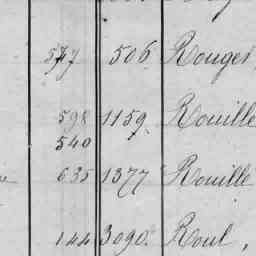 547 506 Rouger
598 1159 Rouillé
540
635 1377 Rouillé
144 3090 Roul,